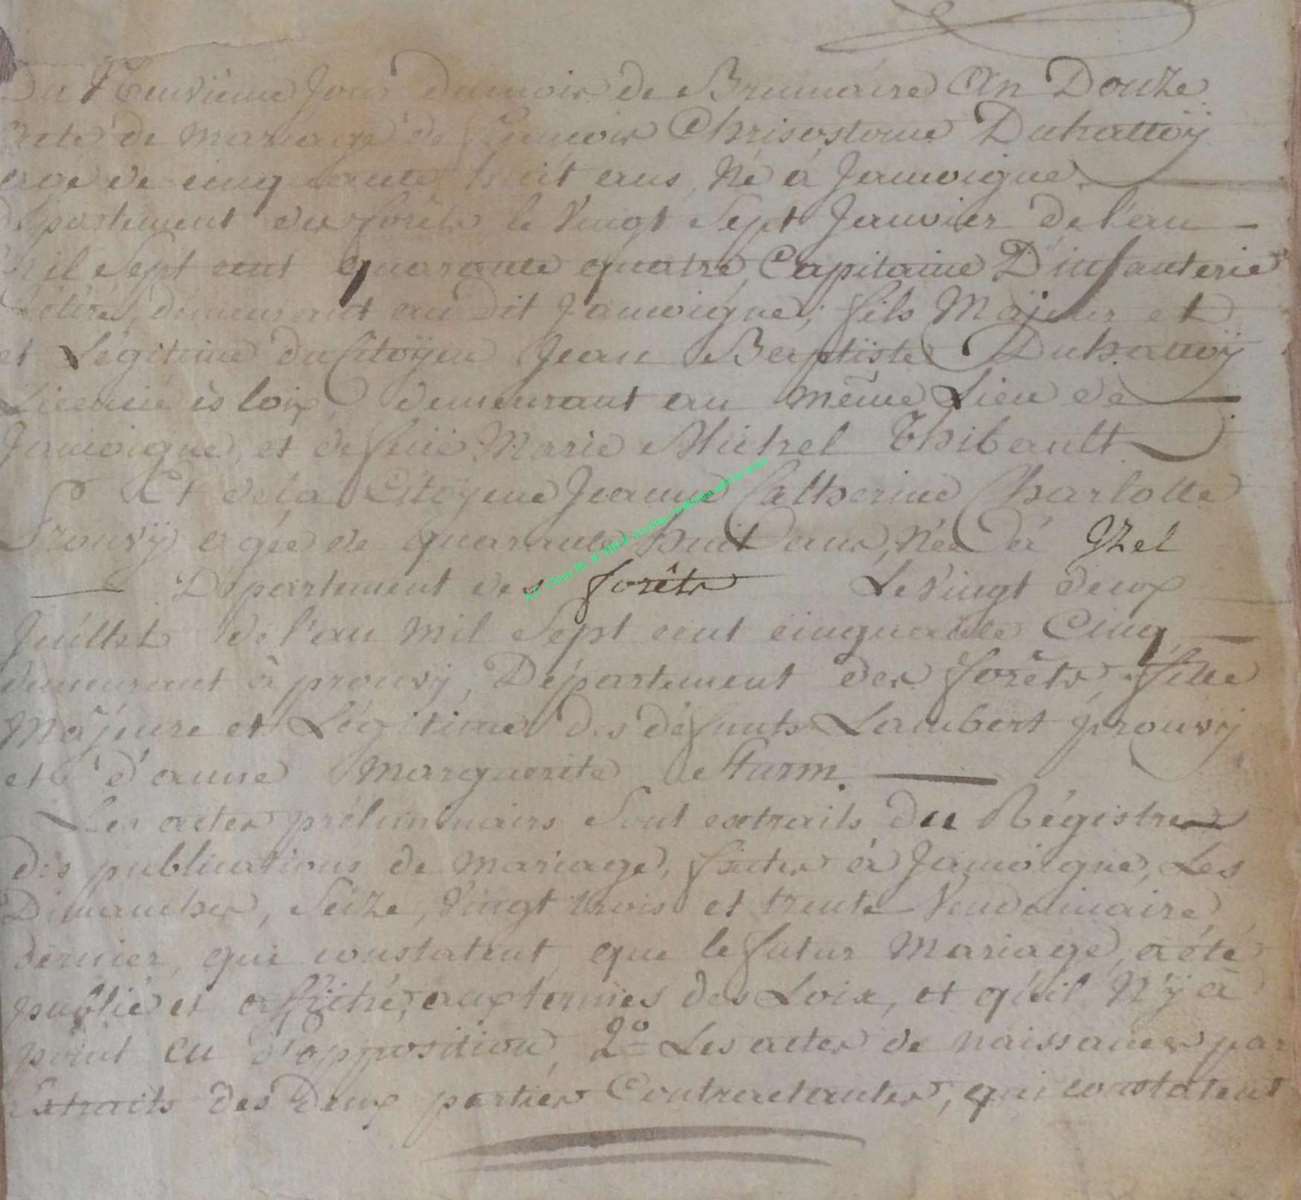 Du Neuviême Jour du mois de Brumaire An Douze
acte de mariage de Francois Chrisostome Duhattoÿ
agé de cinquante huit ans, Né à Jamoigne
Département des forêts le Vingt Sept Janvier de l'an
Mil Sept cent quarante quatre, Capitaine D'infanterie
rétiré, demeurant au dit Jamoigne, fils Majeur et
et Légitime du Citoÿen Jean Baptiste Duhattoÿ
Licencié ès loix, demeurant au même Lieu de
Jamoigne, et de fuë Marie Michel Thibault
Et de la Citoyene Jeanne Catherine Charlotte
Prouvÿ agée de quarante huit ans, Née à Izel
Département des forêts Le Vingt deux
Juillet de l'an Mil Sept cent cinquante Cinq
demeurant à prouvÿ, Département des forêts, fille
Majeure et Légitime des défunts Lambert prouvÿ
et d'anne Marguerite Sturm.
Les actes préliminairs Sont extraits du Régistre
des publications de mariage, faites à Jamoigne, Les
Dimanches, Seize, Vingt trois et trente Vendemiaire
dernier, qui constatent que le futur Mariage, a été
publié et affiché, aux termes des Loix, et qu'il N'ÿ à
point eu d'opposition, 2º Les actes de naissances par
Extraits des deux parties Contractantes, qui constatent